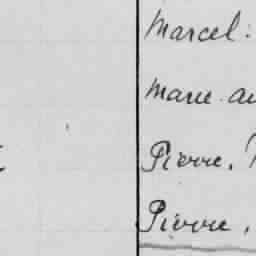 Marcel.
Marie. au
Pierre.
Pierre.